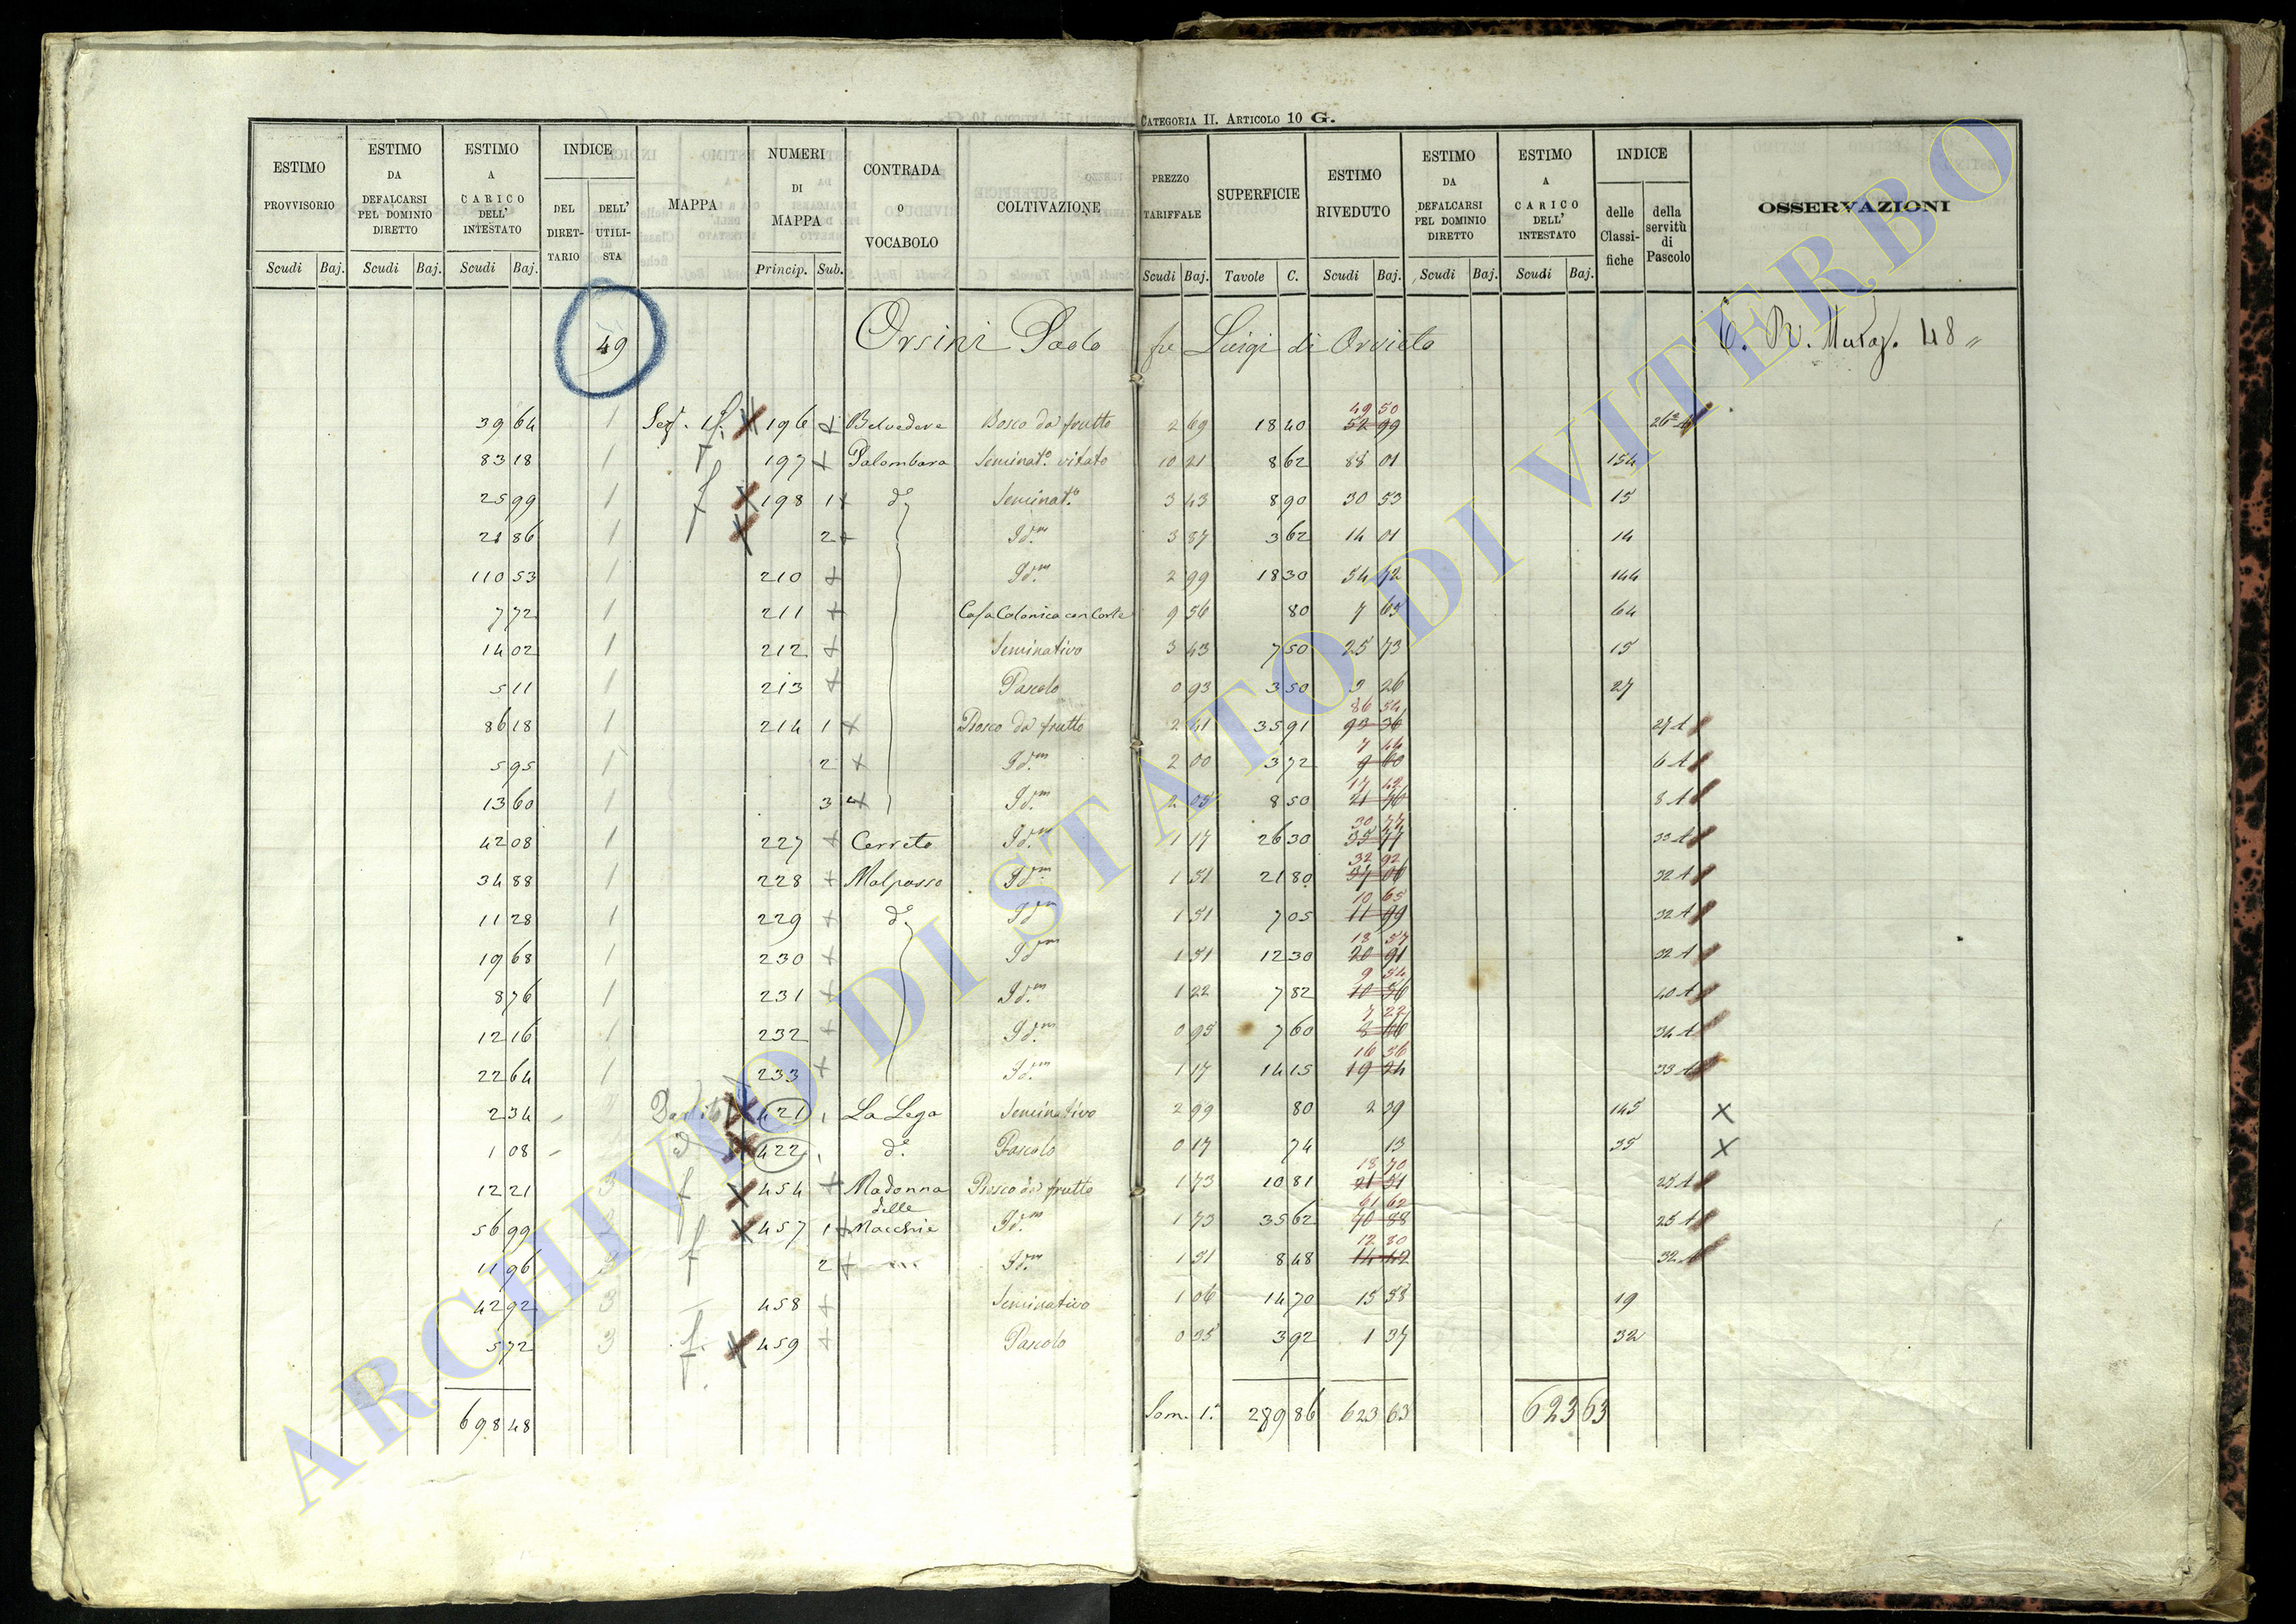 CATEGORIA II. ARTICOLO 10 G.
ESTIMO PROVVISORIO | ESTIMO DA DEFALCARSI PEL DOMINIO DIRETTO | ESTIMO A CARICO DELL' INTESTATO | INDICE | MAPPA | NUMERI DI MAPPA | CONTRADA O VOCABOLO | COLTIVAZIONE | PREZZO TARIFFALE | SUPERFICIE | ESTIMO RIVEDUTO | ESTIMO DA DEFALCARSI PEL DOMINIO DIRETTO | ESTIMO A CARICO DELL' INTESTATO | INDICE | OSSERVAZIONI
DEL DIRETTARIO | DELL' UTILISTA | delle Classifiche | della servitù di Pascolo
Scudi Baj. | Scudi Baj. | Scudi Baj. | Princip. Sub. | Scudi Baj. | Tavole C. | Scudi Baj. | Scudi Baj. | Scudi Baj.
49 Orsini Paolo fu Luigi di Orvieto
39 64 1 196 Belvedere Bosco da frutto 2 69 18 40 49 50 52 99
83 18 1 197 Palombara Seminat.o vitato 10 21 8 62 88 01 154
25 99 1 198 1 do Seminat.o 3 43 8 90 30 53 15
21 86 1 2 Idm 3 87 3 62 14 01 14
110 53 1 210 Idm 2 99 18 30 54 72 144
7 72 1 211 Casa Colonica con Corte 9 56 80 7 65 64
14 02 1 212 Seminativo 3 43 7 50 25 73 15
5 11 1 213 Pascolo 0 93 3 50 3 26 27
86 18 1 214 1 Bosco da frutto 2 41 35 91 86 54 93 36 27 A
5 95 1 2 Idm 2 00 3 72 7 44 9 60 6 A
13 60 1 3 Idm 2 05 8 50 17 42 8 A
42 08 1 227 Cerreto Idm 1 17 26 30 30 77 35 77 33 A
34 88 1 228 Malpasso Idm 1 51 21 80 32 92 32 A
11 28 1 229 do Idm 1 51 7 05 10 65 11 99 32 A
19 68 1 230 Idm 1 51 12 30 18 57 20 91 32 A
8 76 1 231 Idm 1 22 7 82 9 54 10 56 40 A
12 16 1 232 Idm 0 95 7 60 7 22 34 A
22 64 1 233 Idm 1 17 14 15 16 56 19 24 33 A
2 34 421 La Lega Seminativo 2 99 80 2 39 145 X
1 08 422 do Pascolo 0 17 74 13 35 X
12 21 3 454 Madonna Bosco da frutto 1 73 10 81 18 70 21 51 25 A
delle
56 99 457 1 Macchie Idm 1 73 35 62 61 62 70 88 25 A
11 96 3 2 Idm 1 51 8 48 12 80 14 42 32 A
42 92 3 458 Seminativo 1 06 14 70 15 58 19
5 72 3 459 Pascolo 0 35 3 92 1 37 32
698 48 Som. 1.a 289 86 623 63 623 63
ARCHIVIO DI STATO DI VITERBO